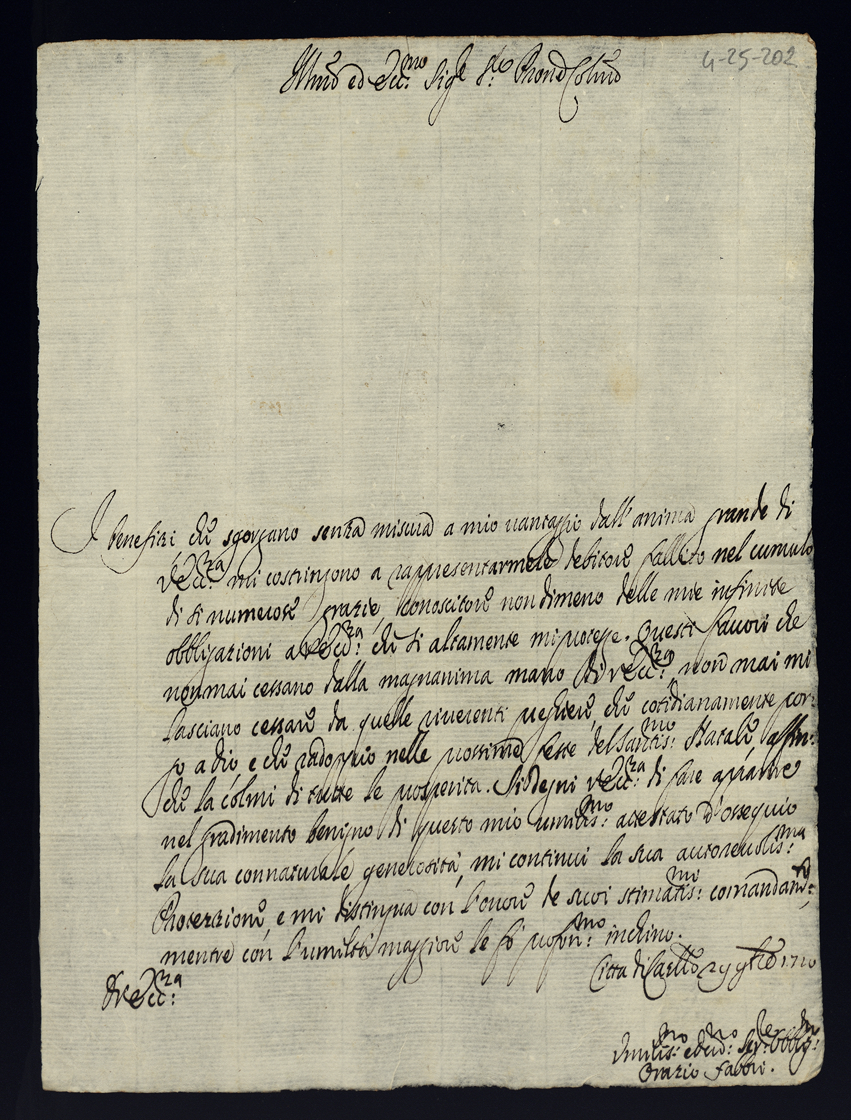 4-25-202
Illmo ed Ecc:mo Sigr Sr Pron Colmo
I benefizi che sgorgano senza misura a mio vantaggio dall'anima grande di
V. Ecc:za mi costringono a rappresentarmele debitore fallito nel cumulo
di sì numerose grazie, conoscitore nondimeno delle mie infinite
obbligazioni a V. Ecc:za che sì altamente mi protegge. Questi favori che
non mai cessano dalla magnanima mano di V. Ecc:za, non mai mi
lasciano cessare da quelle riverenti preghiere, che cotidianamente por:
go a dio, e che radoppio nelle prossime feste del Santis:mo Natale, affin:
che la colmi di tutte le prosperità. Si degni V. Ecc:za di fare apparire
nel gradimento benigno di questo mio umilis:mo attestato d'ossequio
la sua connaturale generosità, mi continui la sua autorevolis:ma
Protezzione, e mi distingua con l'onore de suoi stimatis:mi comandam:ti,
mentre con l'umiltà maggiore le fò profon:mo inchino.
Città di Castello 29 1710
Di V. Ecc:za
Umilis:mo ed Serre Obblig:mo
Orazio Fabbri.